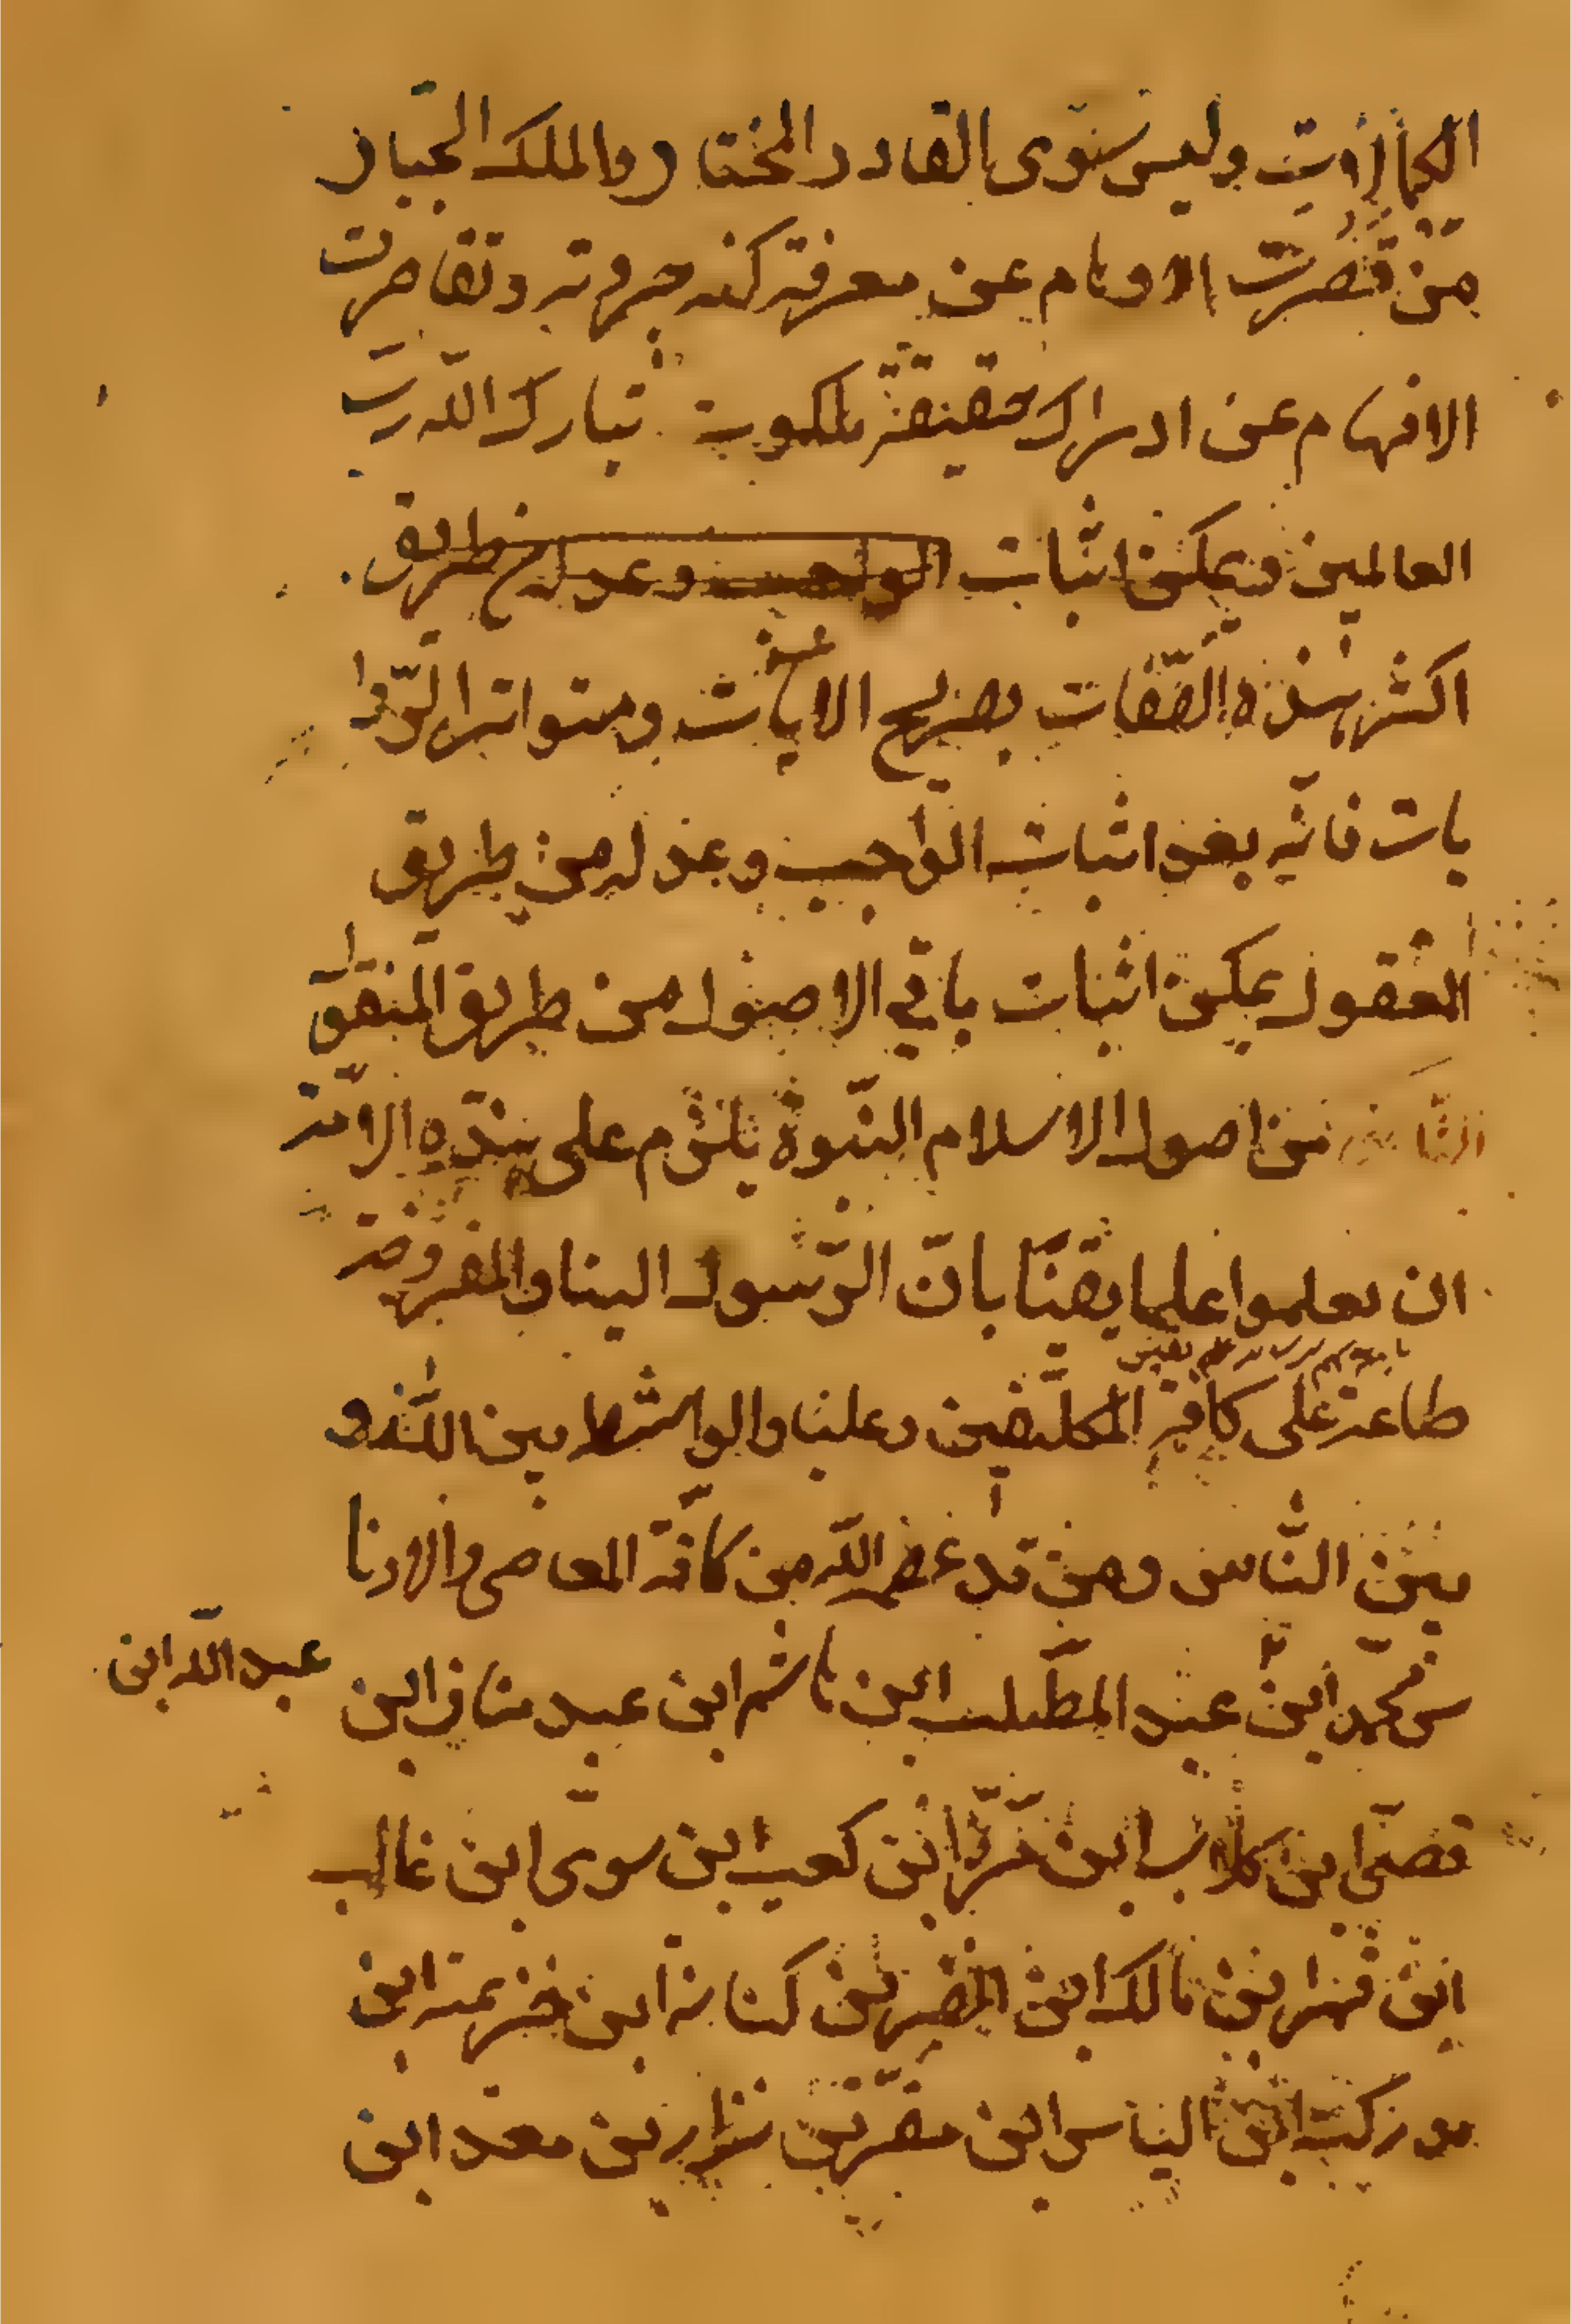 الكمالات وليس سوى بالقادر المختار والملك الجبار
من قصرت الاوهام عن معرفة كنه جبروته وتقاصرت
الافهام عن ادراك حقيقة ملكوته تبارك الله رب
العالمين ويمكن اثبات الواجب وعدله من طريق
اكثر هذه الصفات بصريح الايات ومتواتر الروا
يات فانه بعد اثبات الواجب وعدله من طريق
العقول يمكن اثبات باقي الاصول من طريق المنقول
الثاني من اصول الاسلام النبوة يلزم على هذه الامة
ان يعلموا علما يقينا بان الرسول الينا والمفروضة
طاعته على كافة المكلفين علينا والواسطة بين الله و
بين الناس ومن قد عصم الله من كافة المعاصي والادنا
س محمد ابن عبد المطلب ابن هاشم ابن عبد مناف ابن
عبد الله ابن
قصى ابن كلاب ابن مرة ابن كعب ابن سوى ابن غالب
ابن فهر ابن مالك ابن النضر بن كنانه ابن خزيمة ابن
مدركة ابن الياس ابن مضر بن نزار بن معد ابن